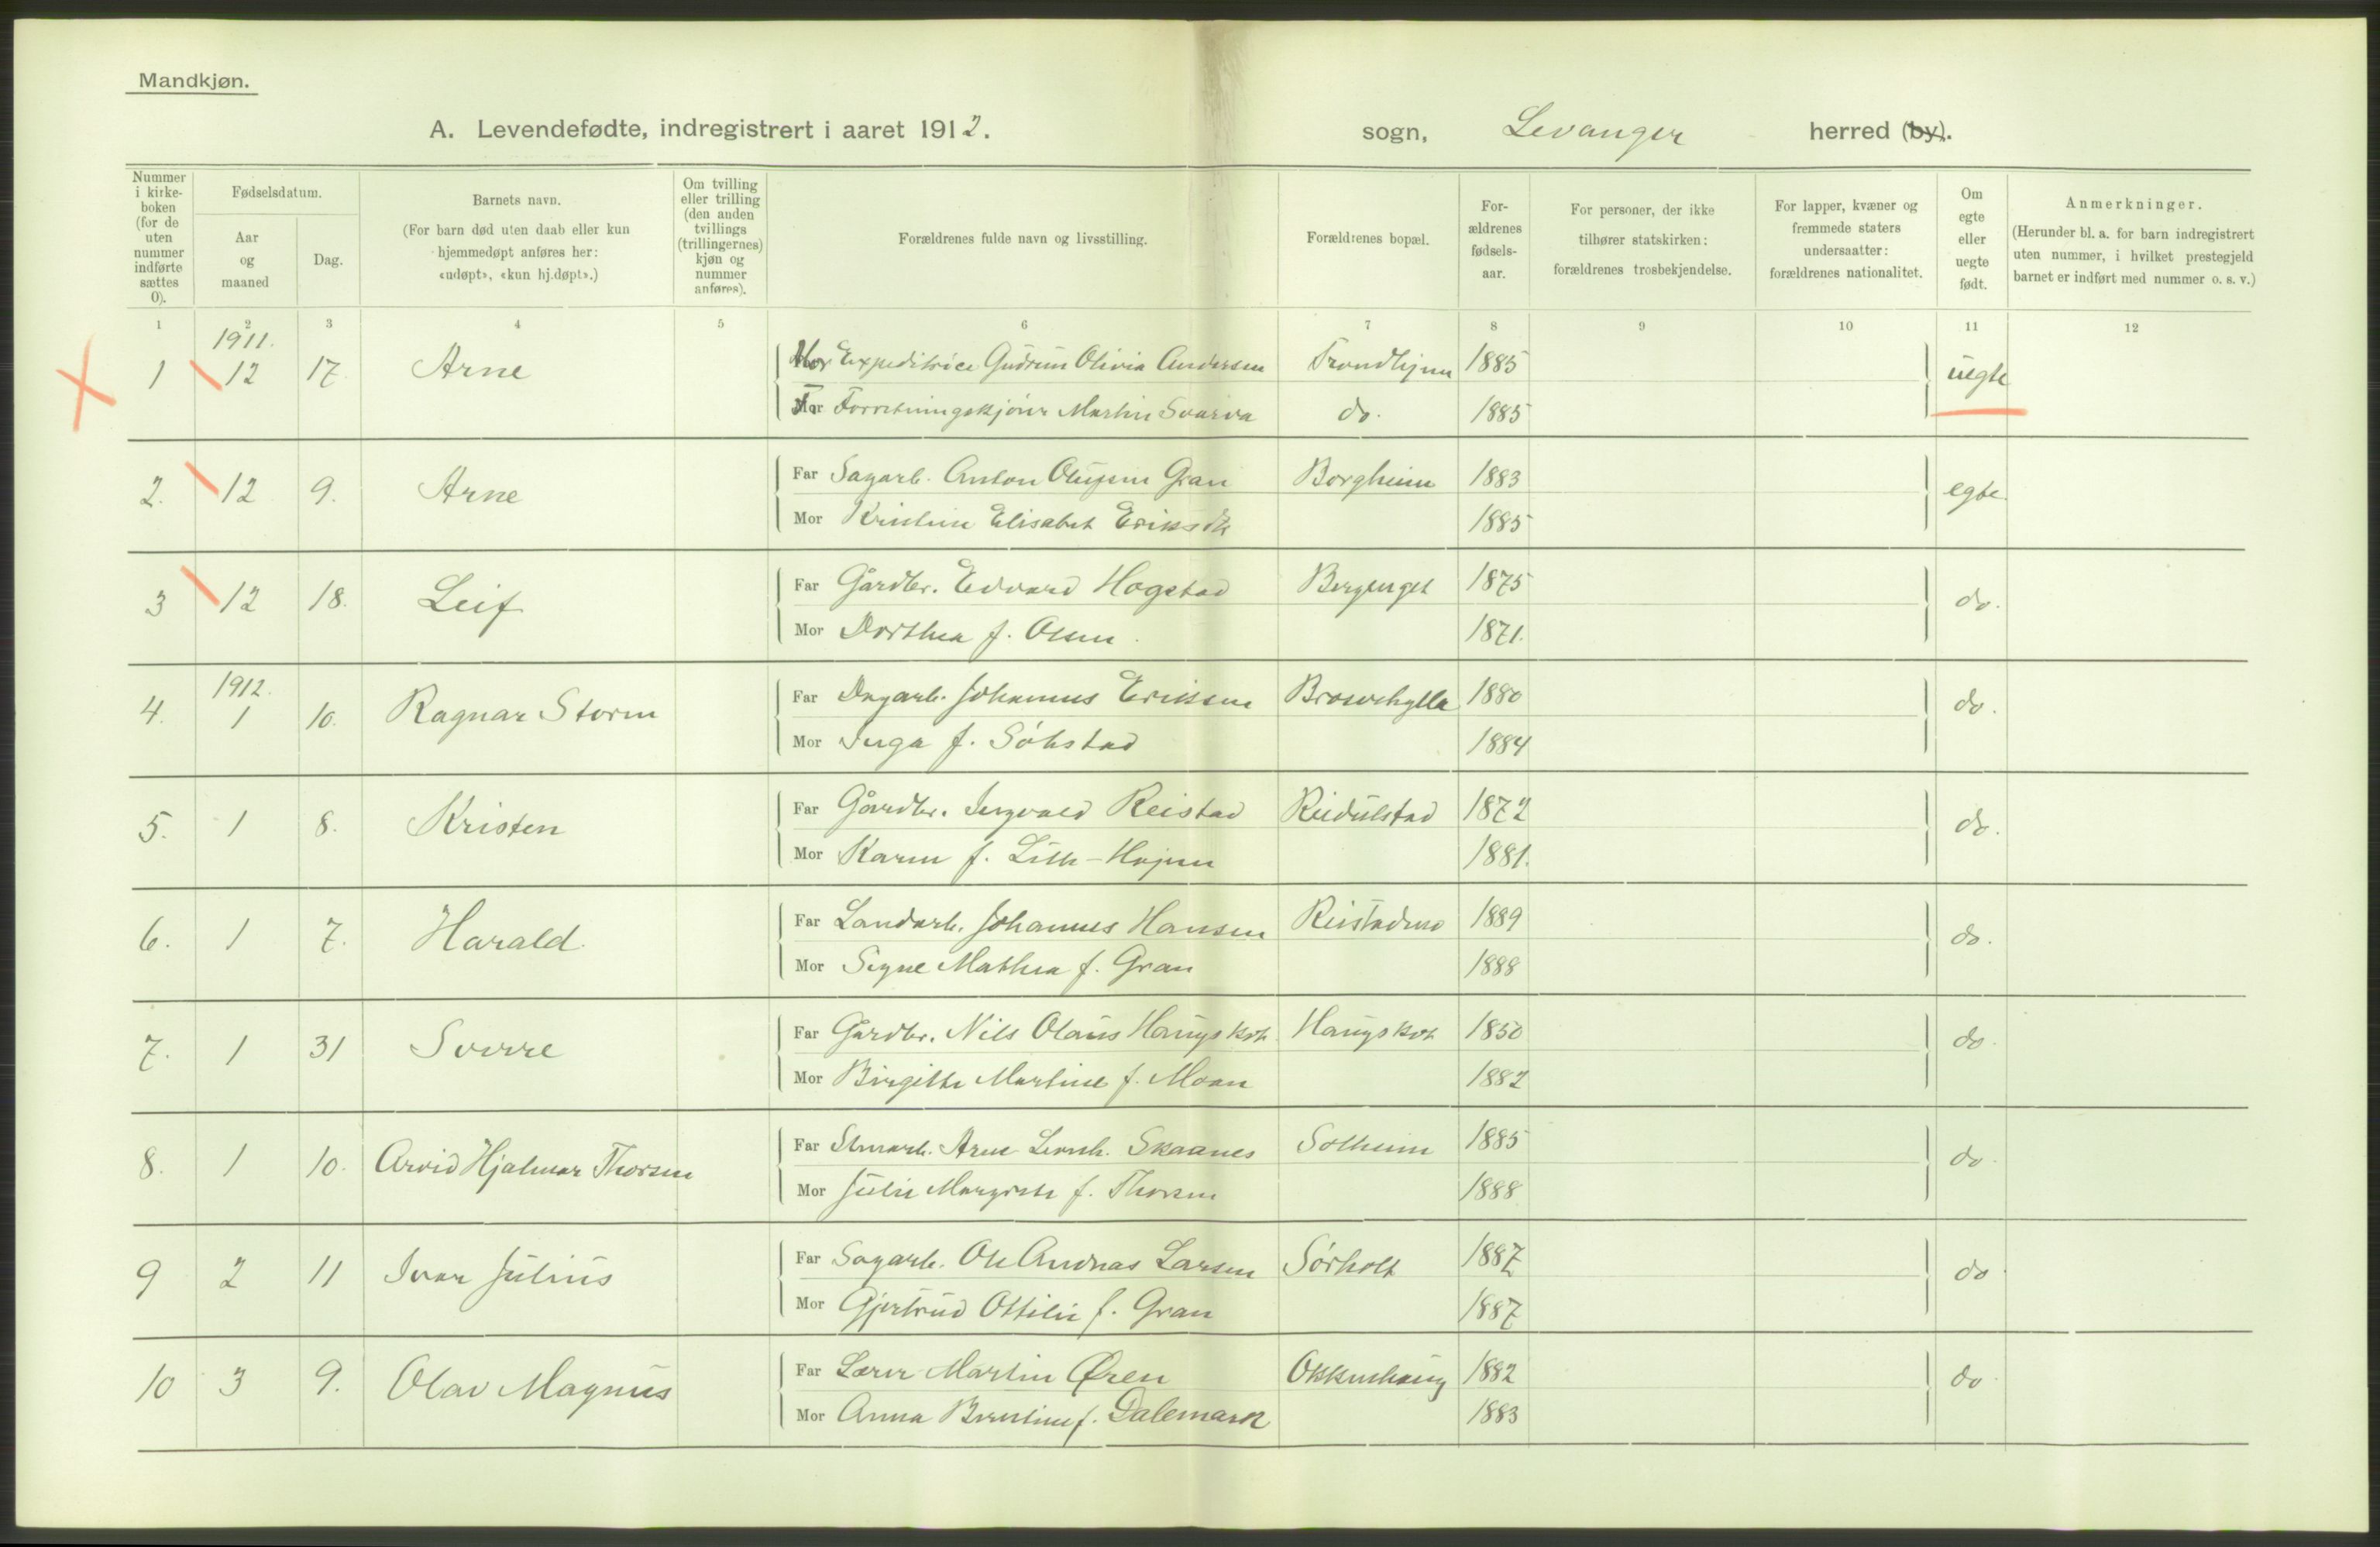 Mandkjøn.
A. Levendefødte, indregistrert i aaret 1912. sogn, Levanger herred (by).
Nummer i kirke-boken (for de uten nummer indførte sættes 0).
Fødselsdatum.
Aar og maaned
Dag.
Barnets navn.
(For barn død uten daab eller kun hjemmedøpt anføres her: «udøpt», «kun hj.døpt».)
Om tvilling eller trilling (den anden tvillings (trillingernes) kjøn og nummer anføres).
Forældrenes fulde navn og livsstilling.
Forældrenes bopæl.
For-ældrenes fødsels-aar.
For personer, der ikke tilhører statskirken: forældrenes trosbekjendelse.
For lapper, kvæner og fremmede staters undersaatter: forældrenes nationalitet.
Om egte eller uegte født.
Anmerkninger.
(Herunder bl. a. for barn indregistrert uten nummer, i hvilket prestegjeld barnet er indført med nummer o. s. v.)
1 2 3 4 5 6 7 8 9 10 11 12
1911.
1 12 17. Arne Mor Expeditrice Gudrun Olivia Andersen Trondhjem 1885 uegte
Far Forretningskjører Martin Svarva do. 1885
2. 12 9. Arne Far Sagarb. Anton Gran Borgheim 1883 egte
Mor Kristine Elisabet 1885
3 12 18. Leif Far Gårdbr. Edvard Hogstad 1875 do.
Mor Dorthea f. Olsen 1871.
1912.
4. 1 10. Ragnar Storm Far Dagarb. Johannes Eriksen 1880 do.
Mor Inga f. Søhstad 1884
5. 1 8. Kristen Far Gårdbr. Ingvald Reistad Reidulstad 1872 do.
Mor Karen f. Lith-Hojem 1881.
6. 1 7. Harald Far Landarb. Johannes Hansen Reistadmo 1889 do.
Mor Signe Mathea f. Gran 1888
7. 1 31 Sverre Far Gårdbr. Nils Olaus Haugskot Haugskot 1850 do.
Mor Birgitte Martine f. Moan 1882
8. 1 10. Arvid Hjalmar Thorsen Far Arne Skaanes Solheim 1885 do
Mor Julie Margrete f. Thorsen 1888
9 2 11 Ivar Julius Far Sagarb. Ole Andreas Larsen Sørholt 1887 do
Mor Gjertrud Ottilie f. Gran 1887
10 3 9. Olav Magnus Far Lærer Martin Øren Okkenhaug 1882 do
Mor Anna f. Dalemark 1883